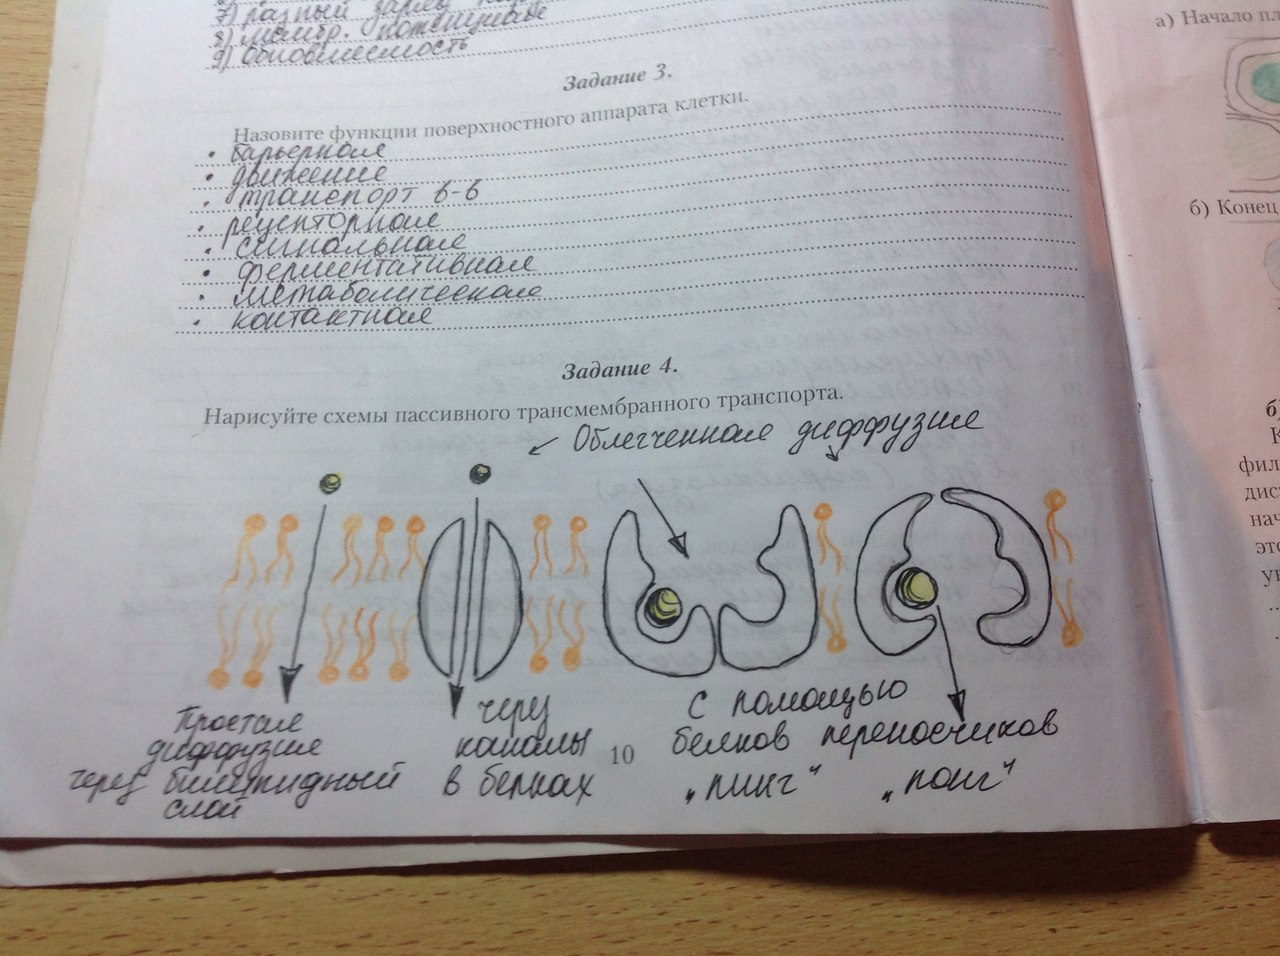 7) разный заряд
8) мембр. потенциал
9) обновляемость
Задание 3.
Назовите функции поверхностного аппарата клетки.
• барьерная
• движение
• транспорт в-в
• рецепторная
• сигнальная
• ферментативная
• метаболическая
• контактная
Задание 4.
Нарисуйте схемы пассивного трансмембранного транспорта.
Облегченная диффузия
Простая
диффузия
через билипидный
слой
через
каналы
в белках
10
с помощью
белков переносчиков
„пинг“ „понг“
а) Начало
б) Конец
б
К
фил
дис
нач
это